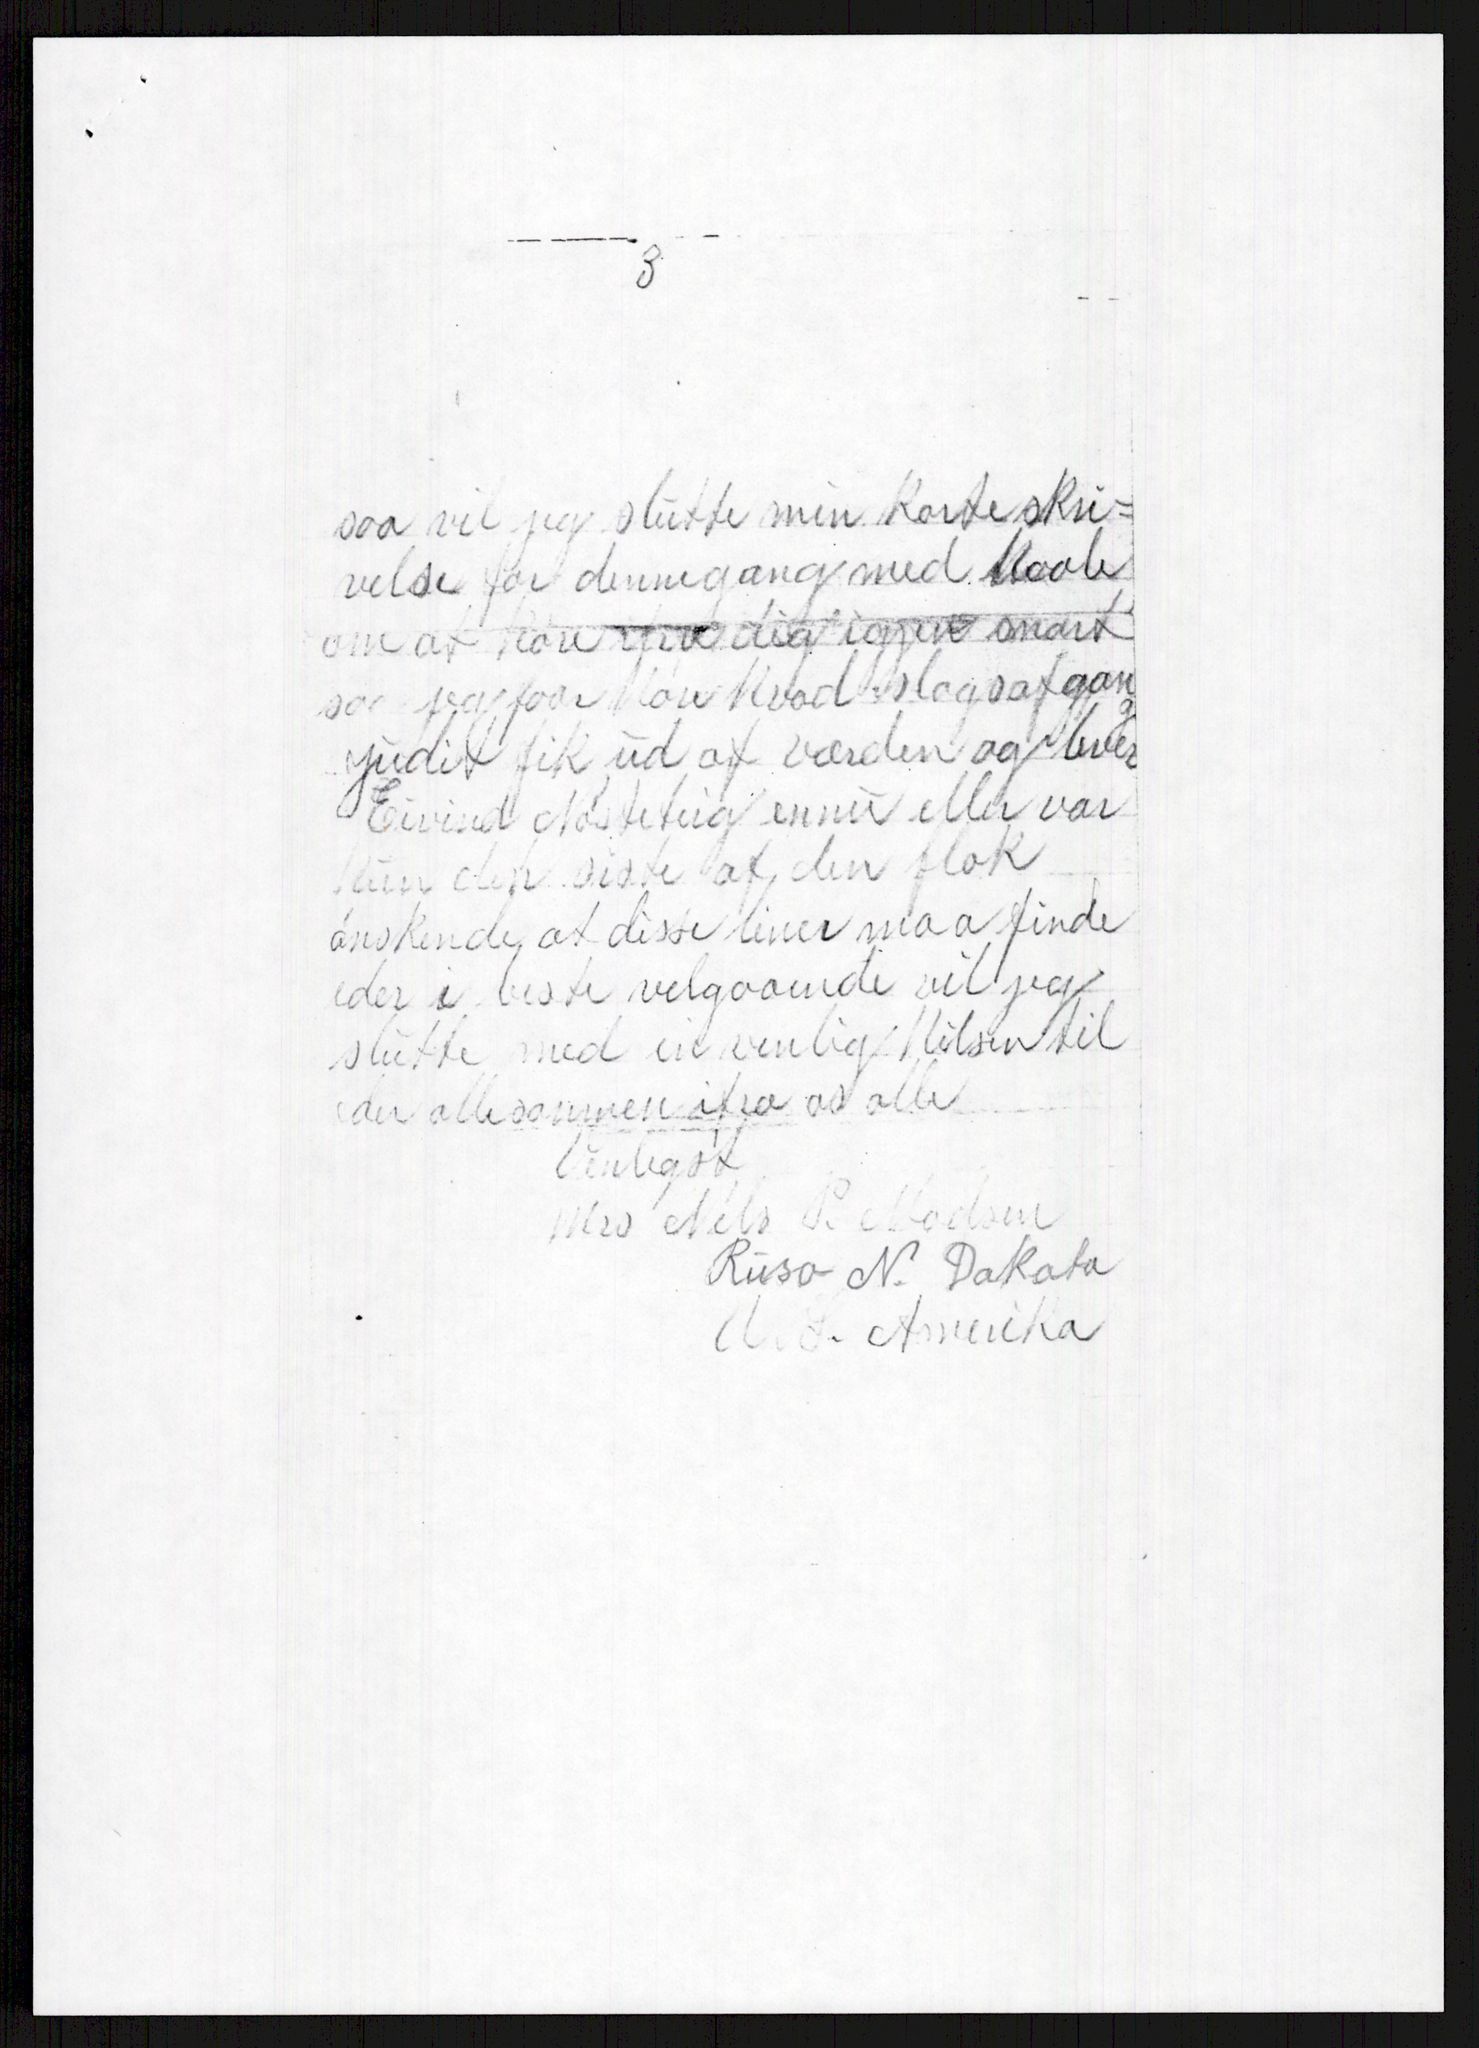 3
saa vil jeg slutte min korte skri=
velse for dennegang med Haab
om at høre fra dig igjen snart
saa jeg faar høre hvad slags afgang
judit fik ud af værden og lever
Eivind Nösteteig ennu eller var
hun den siste af den flok
önskende at disse liner maa finde
eder i beste velgaaende vil jeg
slutte med en venlig Hilsen til
eder allesammen ifra os alle
Venligst
Mrs Nels P. Madsen
Ruso N. Dakota
U. S. Amerika